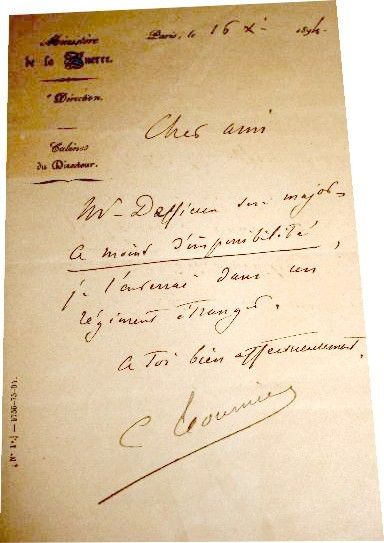 Ministère
de la Guerre.
Direction.
Cabinet
du Directeur.
Paris, le 16 Xi 1894.
Cher ami
Mr Daffieu sera major
à moins d'impossibilité,
je l'enverrai dans un
régiment étranger.
à toi bien affectueusement.